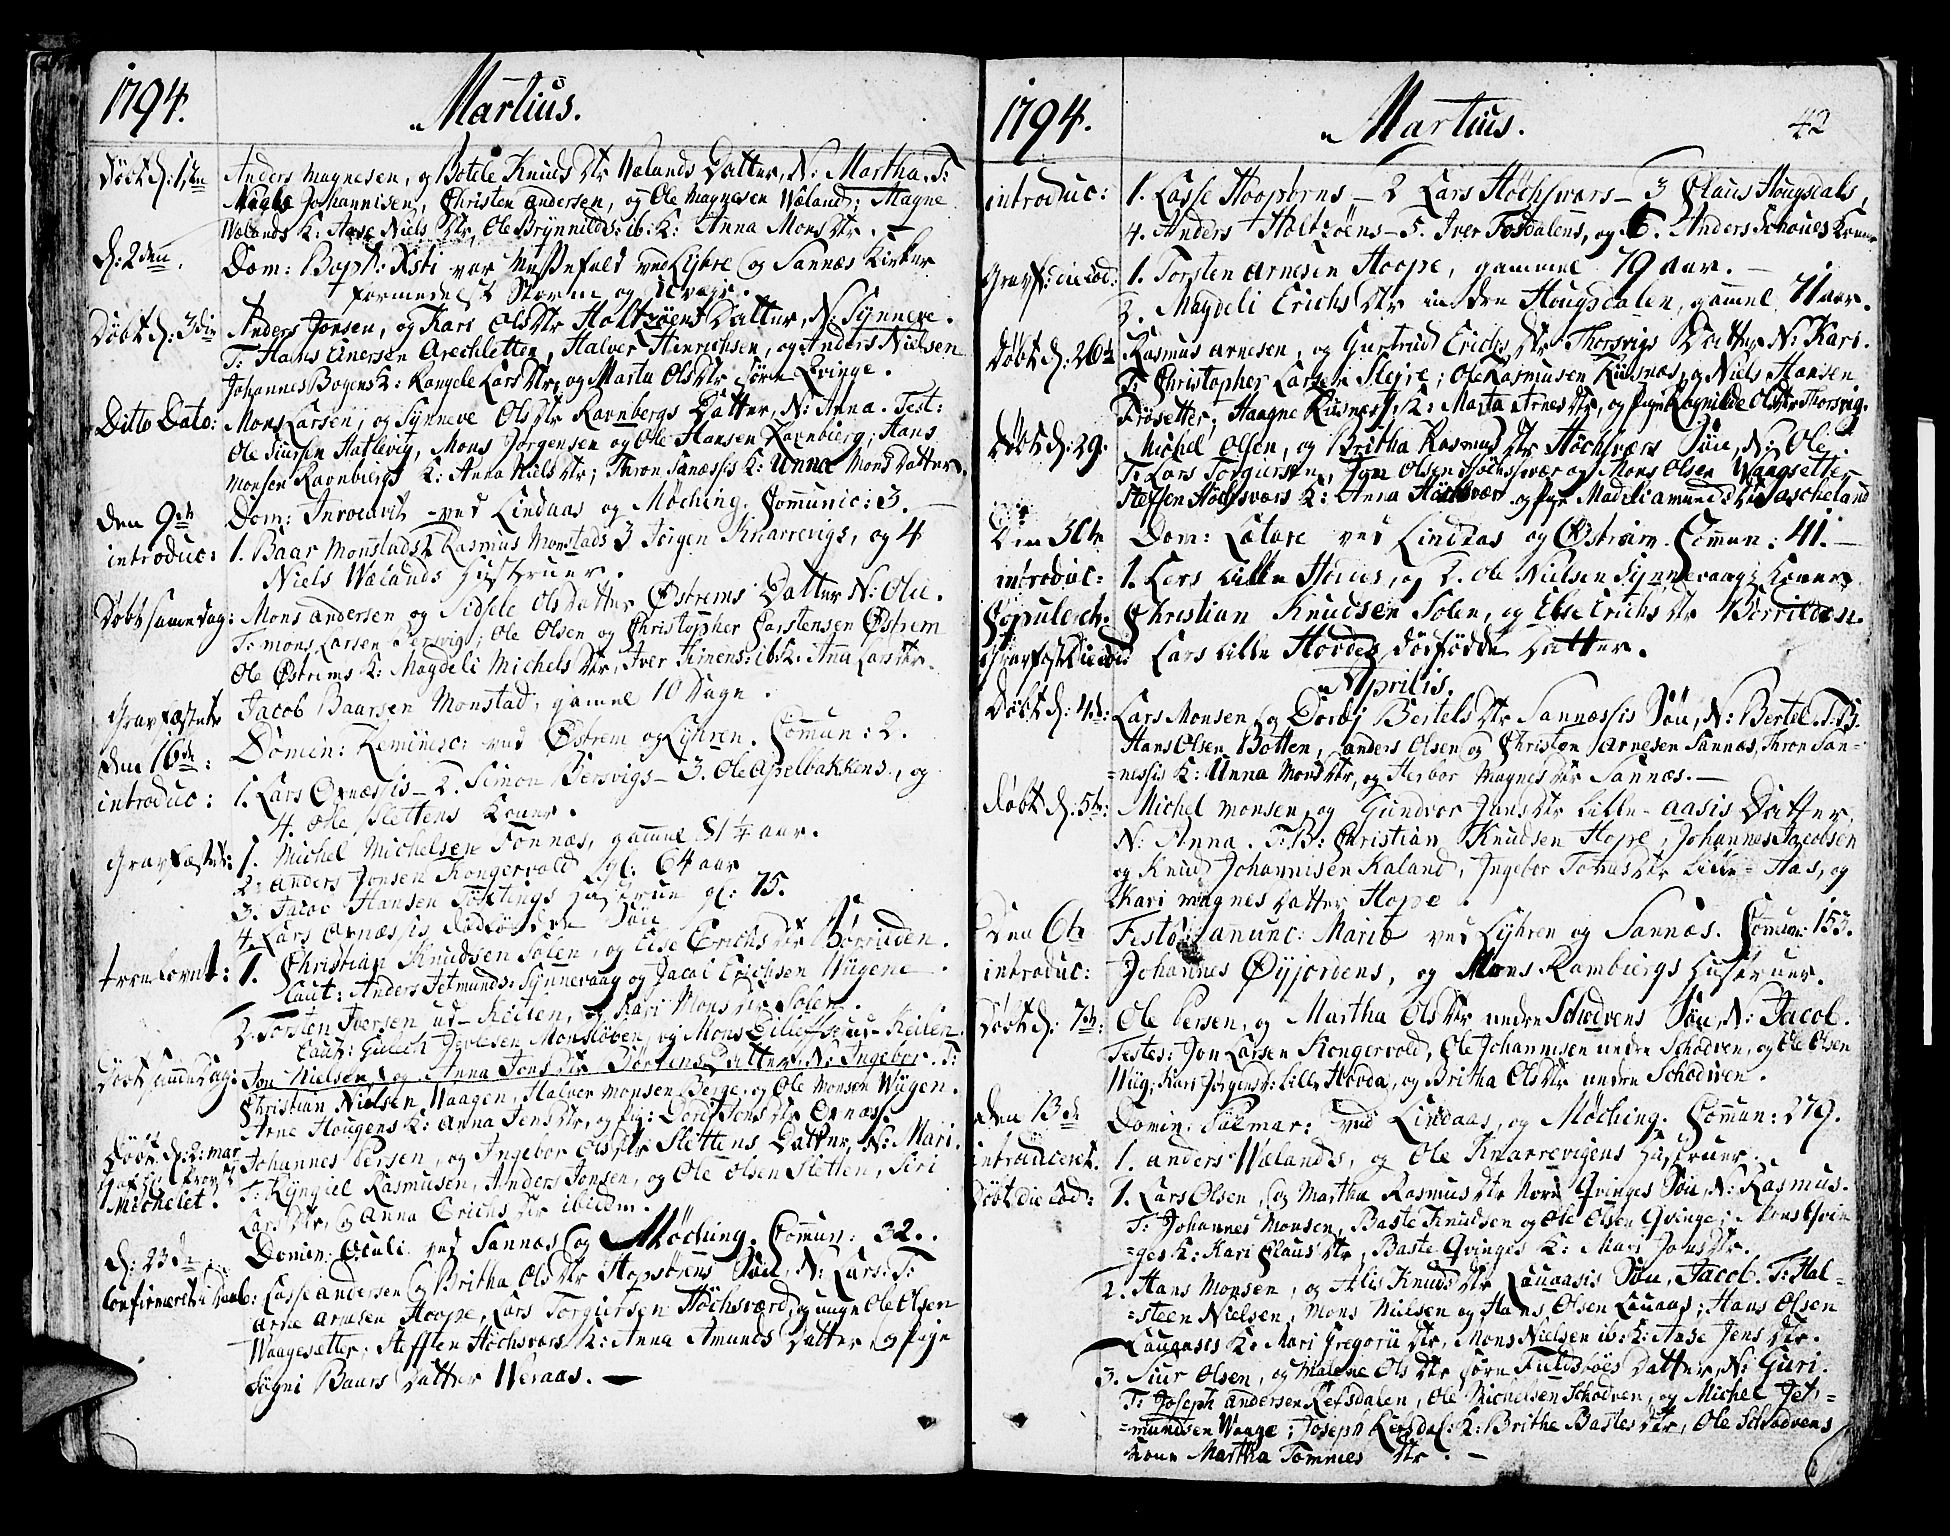 1794. Martius.
Døbt d: 1ste Anders Magnesen, og Botele Knuds Dtr Wælands Datter, N: Martha. T:
Johannesen, Christen Andersen, og Ole Magnesen Wæland; Magne
Wælands K: Aase Niels Dtr, Ole Brynnilds: ib: K: Anna Mons Dtr. —
d: 2den. Dom: Xsti var Messefald ved Lyhre og Sannæs Kirker
formedelst Storm og
Døbt d: 3die Anders Jonsen, og Kari Ols Dtr Holtzøens Datter, N: Synneve.
T: Hans Einersen Arechletten, Halver Hinrichsen, og Anders Nielsen
Johannes Bogens K: Rangele Lars Dtr, og Marta Ols Dtr Qvinge.
Ditto Dato: Mons Larsen, og Synneve Ols Dtr Ravnbergs Datter, N: Anna. Test:
Ole Siursen Hatlevig, Mons Jørgensen og Ole Hansen Ravnbierg; Hans
Monsen Ravnbiergs K: Anna Niels Dtr; Thron Sanæssis K: Unna Mons Datter.
Den 9de Dom: Invocavit ved Lindaas og Møching. Communic: 3. —
introduc: 1. Baar Monstads 2 Rasmus Monstads 3 Jørgen Knarrevigs, og 4
Niels Wælands Hustruer.
Døbt samme dag: Mons Andersen og Sidsele Ols Datter Østrems Datter N: Olie.
T: Mons Larsen Bersvig; Ole Olsen og Christopher Carstensen Østrem
Ole Østrems K: Magdeli Michels Dtr, Iver Simens: ib: K: Anna Lars Dtr.
Gravfæstet Jacob Baarsen Monstad, gammel 10 Dage.
Den 16de: Domin: Reminisc: ved Østrem og Lyhren. Commun: 2.
introduc: 1. Lars Ornæssis — 2. Simon Bersvigs — 3. Ole Apelbakkens, og
4. Ole Slettens Koner.
Gravfæstet: 1. Michel Michelsen Fonnæs, gammel 81 1/4 aar.
2. Anders Jonsen Kongervold gl: 64 aar
3. Jacob Hansen Hustrue gl: 75.
4. Lars Ornæssis dødfødde Søn
trolovet: 1. Christian Knudsen Solen, og Else Erichs Dtr Børrilden.
Caut: Anders Jetmunds: Synnevaag og Jacob Erichsen Wiigene.
2. Torsten Iversen ud-Keilen, og Kari Mons Dtr Solen.
Caut: Monsløven, og Mons ud-Keilen.
Døbt samme dag: Jon Nielsen, og Anna Jons Dtr Datter N: Ingebor. T:
Christian Nielsen Waagen, Halver Monsen Berge, og Ole Monsen Wiigen.
Arne Hougens K: Anna Jens Dtr, og pig: Dorte Jons Dtr Ornæs.
Døbt d: 2: Mar Johannes Persen, og Ingebor Ols Dtr Slettens Datter, N: Mari.
T: Kyngiel Rasmusen, Anders Jonsen, og Ole Olsen Sletten, Siri
Michelet. Lars Dtr, og Anna Erichs Dtr ibidem.
d: 23de Domin: Oculi ved Sannæs og Møching. Commun: 32.
Confirmeret Daab: Lasse Andersen og Britha Ols Dtr Hopstrens Søn, N: Lars. T:
Arne Arnesen Hoope, Lars Torgiersen Høchsværd, og unge Ole Olsen
Waagesætter, Steffen Høchsværs K: Anna Amunds Datter og pige
Søgni Baars Datter Weraas. —

1794. Martius. 42
introduc: 1. Lasse Hoopstrns — 2 Lars Høchsværs — 3 Claus Hougsdals,
4. Anders Holtzøens — 5. Iver Fosdalens, og 6. Anders Schoues Koner
Gravf: die eod: 1. Torsten Arnesen Hoope, gammel 79 aar. —
2. Magdeli Erichs Dtr in den Hougsdalen, gammel 71 aar.
Døbt d: 26de Rasmus Arnesen, og Gurtrud Erichs Dtr Thorsvigs Datter N: Kari.
T: Christopher Larsen Slejre; Ole Rasmusen Kusnæs, og Niels Hansen
Frøsetter; Haagne Kusnæs K: Marta Arnes Dtr, og pige Ragnilde Ols Dtr Thorsvig.
Døbt d: 29. Michel Olsen, og Britha Rasmus Dtr Høchsværs Søn, N: Ole.
T: Lars Torgiersen, Jon Olsen Høchsvær og Mons Olsen Waagsetter
Steffen Høchsværs K: Anna Høchsvær og pige Madeli Amunds Dtr Ascheland
Den 30te Dom: Lætare ved Lindaas og Østrem. Commun: 41. —
introduc: 1. Lars Lille Hovdes, og 2. Ole Nielsen Synnevaags Koner
Copuleret. Christian Knudsen Solen, og Else Erichs Dtr Børrilden.
Gravfæst: Die eod: Lars Lille Hovdes dødfødde Datter.
Aprilis.
Døbt d: 4de: Lars Monsen og Dordj Bertels Dtr Sannæssis Søn, N: Bertel. T: B:
Hans Olsen Botten, Anders Olsen og Christen Arnesen Sannæs, Thron San=
=nessis K: Unna Mons Dtr, og Herbor Magnes Dtr Sannæs. —
Døbt d. 5te: Michel Monsen, og Gundvor Jans Dtr Lille-aasis Datter,
N: Anna. T: B: Christian Knudsen Hope, Johannes Jacobsen
og Knud Johannesen Kaland, Ingebor Dtr Lille-Aas, og
Kari Magnes Datter Hope.
Den 6te Festo: anunc: Mariæ ved Lyhren og Sannæs. Commun: 153.
introduc: Johannes Øyjordens, og Mons Rambiergs Hustruer.
Døbt d: 7de: Ole Persen, og Martha Ols Dtr nedre Schodvens Søn, N: Jacob.
Testes: Jon Larsen Kongervold, Ole Johannesen nedre Schodven, og Ole Olsen
Wiig; Kari Jørgens D: Lille Hovda, og Britha Ols Dtr nedre Schodven.
Den 13de Domin: Palmar: ved Lindaas, og Møching. Commun: 279.
introduceret. 1. Anders Wælands, og Ole Knarrevigens Hustruer.
Døbt die eod: 1. Lars Olsen, og Martha Rasmus Dtr Nore Qvinges Søn, N: Rasmus.
T: Johannes Monsen, Baste Knudsen og Ole Olsen Qvinge; Mons Qvin
=ges K: Kari Claus Dtr, Baste Qvinges K: Mari Jons Dtr.
2. Hans Monsen, og Alis Knuds Dtr Lauaasis Søn, Jacob. T: Hal=
=steen Nielsen, Mons Nielsen og Hans Olsen Lauaas; Hans Olsen
Lauaases K: Mari Gregorii Dtr, Mons Nielsen ib: K: Aase Jens Dtr.
3. Siur Olsen, og Malene Ols Dtr Datter, N: Guri.
T: Joseph Andersen Refsdalen, Ole Michelsen Schodven, og Michel Jet=
=mundsen Waage; Joseph Refsdal: K: Brithe Bastes Dtr, Ole Schodvens
Kone Martha Tommes Dtr. —